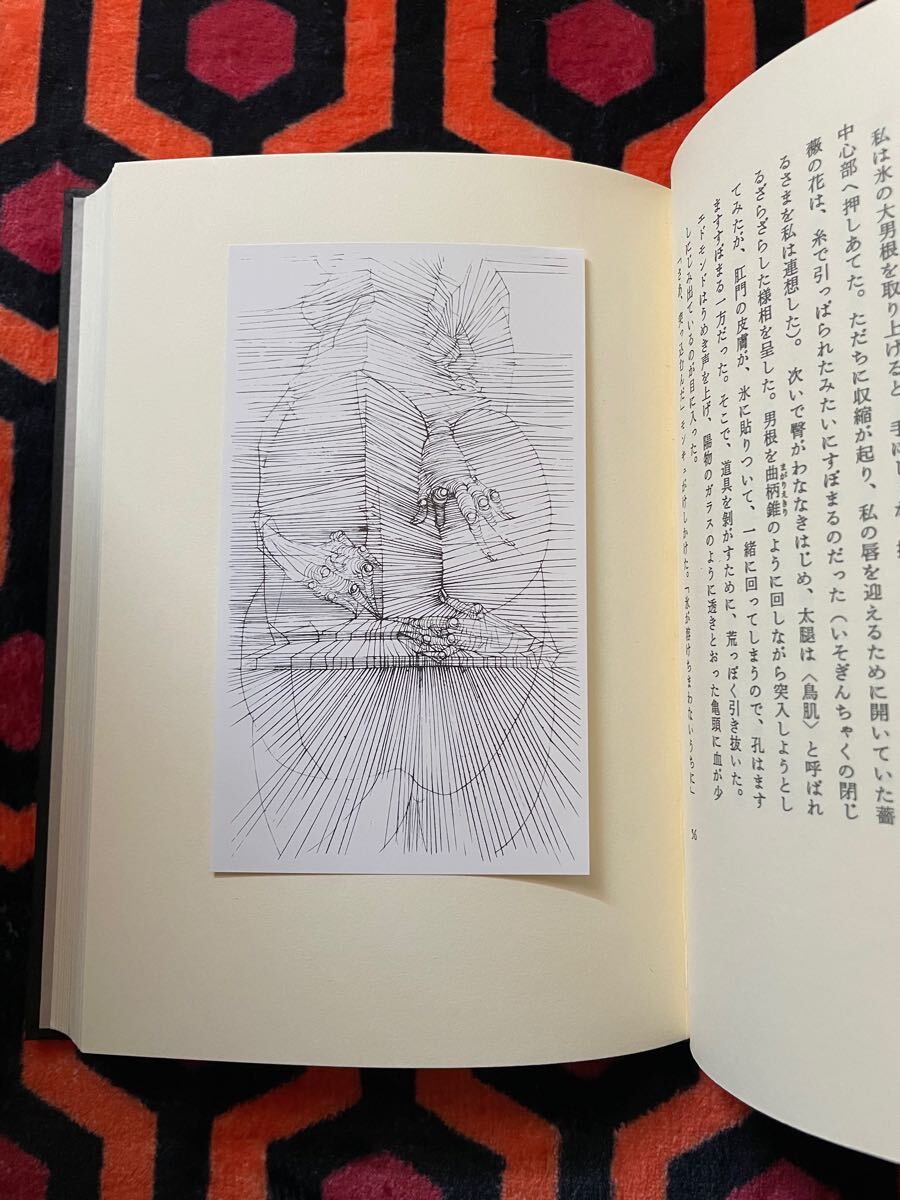 私は氷の大男根を取り上げると、手にし
中心部へ押しあてた。ただちに収縮が起り、私の唇を迎えるために開いていた薔
薇の花は、糸で引っぱられたみたいにすぼまるのだった(いそぎんちゃくの閉じ
るさまを私は連想した)。次いで臀がわななきはじめ、太腿は〈鳥肌〉と呼ばれ
るざらざらした様相を呈した。男根を曲柄錐のように回しながら突入しようとし
まがりえきり
てみたが、肛門の皮膚が、氷に貼りついて、一緒に回ってしまうので、孔はます
ますすぼまる一方だった。そこで、道具を剝がすために、荒っぽく引き抜いた。
エドモンドはうめき声を上げ、陽物のガラスのように透きとおった亀頭に血が少
しにじみ出ているのが目に入った。
「さあ、突っ込むんだ」モンキュがけしかけた。「氷が溶けちまわないうちに」